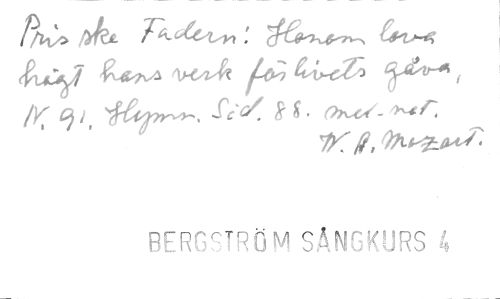 Pris ske Fadern! Honom lova
högt hans verk för livets gåva,
N. 91. Hymn. Sid. 88. mel-not.
W. A. Mozart.
BERGSTRÖM SÅNGKURS 4